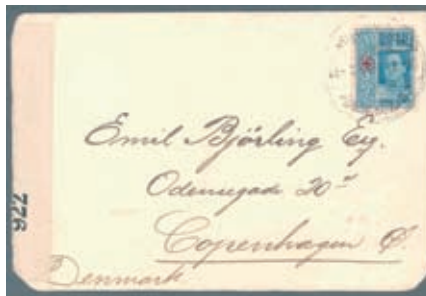 Emil Björling Ey.
Odensegade 20
Copenhagen Ø.
Denmark
922